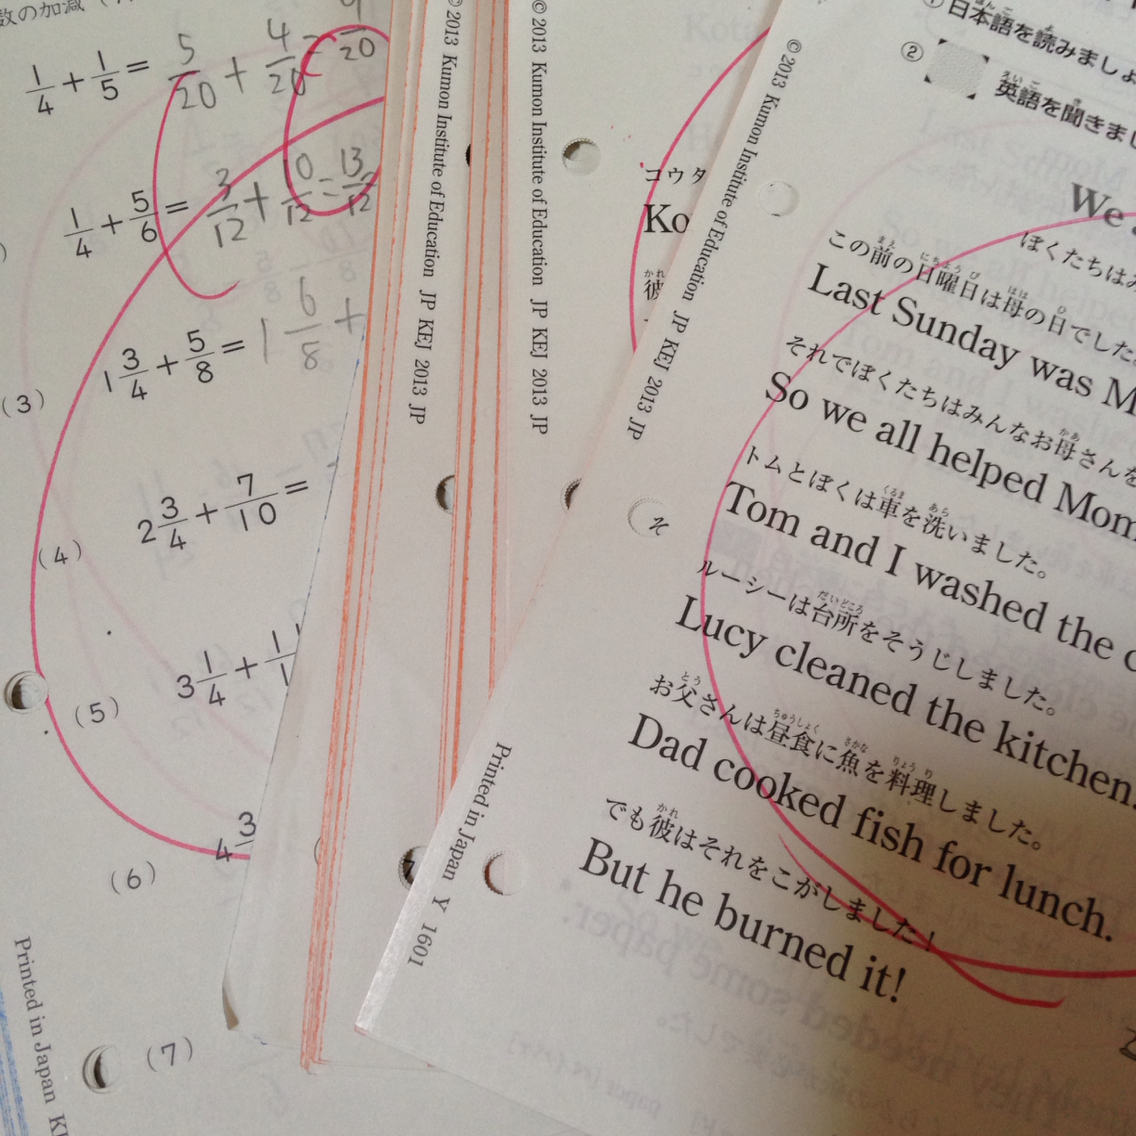 数の加減
1/4 + 1/5 = 5/20 + 4/20 = 9/20
1/4 + 5/6 = 3/12 + 10/12 = 13/12
(3) 1 3/4 + 5/8 = 1 6/8 +
(4) 2 3/4 + 7/10 =
(5) 3 1/4 +
(6) 4 3
(7)
Printed in Japan
© 2013 Kumon Institute of Education JP KEJ 2013 JP
© 2013 Kumon Institute of Education JP KEJ 2013 JP
コウタ
Ko
かれ
彼
そ
© 2013 Kumon Institute of Education JP KEJ 2013 JP
Printed in Japan Y 1601
① 日本語を読みましょ
② 英語を聞きまし
We
ぼくたちはみ
この前の日曜日は母の日でした。
Last Sunday was M
それでぼくたちはみんなお母さんを
So we all helped Mom
トムとぼくは車を洗いました。
Tom and I washed the c
ルーシーは台所をそうじしました。
Lucy cleaned the kitchen.
お父さんは昼食に魚を料理しました。
Dad cooked fish for lunch.
でも彼はそれをこがしました！
But he burned it!